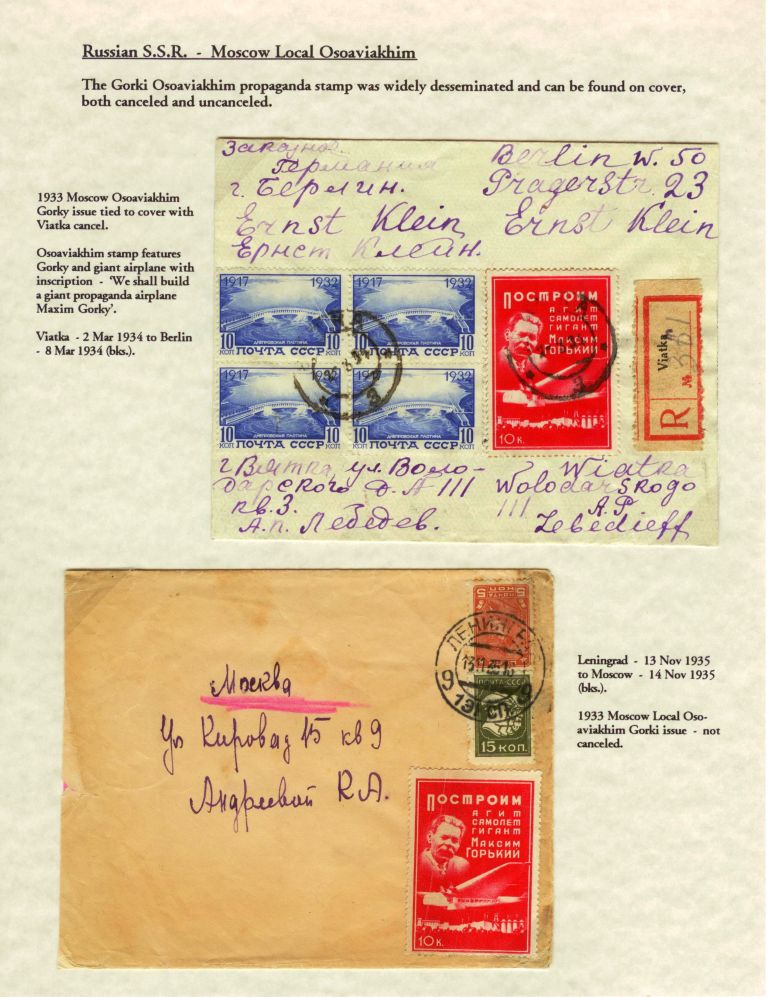 Russian S.S.R. - Moscow Local Osoaviakhim
The Gorki Osoaviakhim propaganda stamp was widely desseminated and can be found on cover,
both canceled and uncanceled.
1933 Moscow Osoaviakhim
Gorky issue tied to cover with
Viatka cancel.
Osoaviakhim stamp features
Gorky and giant airplane with
inscription - 'We shall build
a giant propaganda airplane
Maxim Gorky'.
Viatka - 2 Mar 1934 to Berlin
- 8 Mar 1934 (bks.).
Заказное
Германия
г. Берлин.
Ernst Klein
Ернст Клейн.
Berlin W. 50
Pragerstr. 23
Ernst Klein
1917 1932
ДНЕПРОВСКАЯ ПЛОТИНА
10 КОП ПОЧТА СССР 10
1917 1932
ДНЕПРОВСКАЯ ПЛОТИНА
10 ПОЧТА СССР 10 КОП
1917 1932
ДНЕПРОВСКАЯ ПЛОТИНА
10 КОП ПОЧТА СССР 10
1917 1932
ДНЕПРОВСКАЯ ПЛОТИНА
10 ПОЧТА СССР 10 КОП
ПОСТРОИМ
АГИТ
САМОЛЕТ
ГИГАНТ
МАКСИМ
ГОРЬКИЙ
10 К.
R
Viatka
№
г Вятка ул. Воло-
дарского д. № 111
кв. 3.
А.п. Лебедев.
Wiatka
Wolodarskogo
111 A.P.
Lebedieff
5 ПОЧТА 5
КОП
ЛЕНИНГ
13 11 35
9 9
ПОЧТА СССР
15 КОП.
Москва
Ул Кирова 15 кв 9
Андреевой К.А.
ПОСТРОИМ
АГИТ
САМОЛЕТ
ГИГАНТ
МАКСИМ
ГОРЬКИЙ
10 К.
Leningrad - 13 Nov 1935
to Moscow - 14 Nov 1935
(bks.).
1933 Moscow Local Oso-
aviakhim Gorki issue - not
canceled.